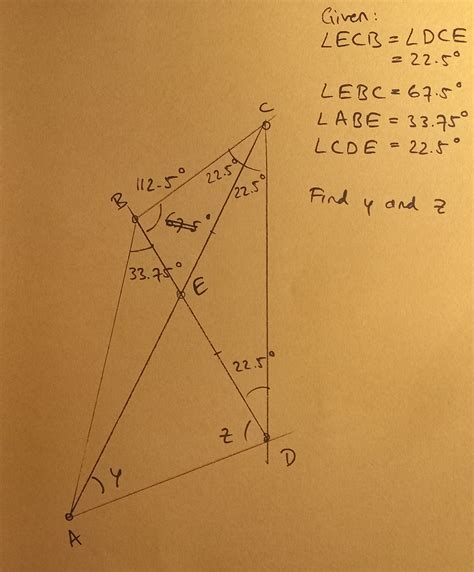 Given:
∠ECB = ∠DCE
= 22.5°
∠EBC = 67.5°
∠ABE = 33.75°
∠CDE = 22.5°
Find y and z
C
112.5°
22.5°
22.5°
B
67.5°
33.75°
E
22.5°
z
D
y
A